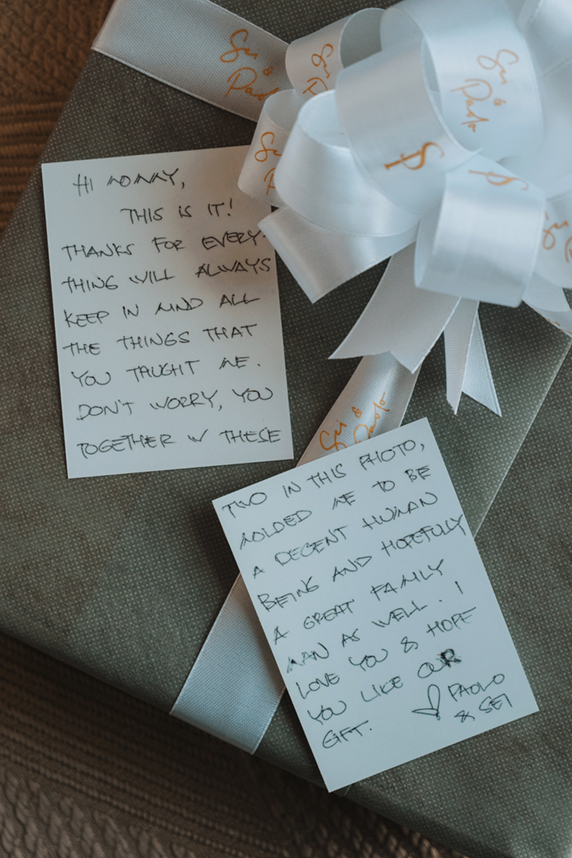 Sei &
Paolo
Sei &
Paolo
HI MOMMY,
THIS IS IT!
THANKS FOR EVERY-
THING WILL ALWAYS
KEEP IN MIND ALL
THE THINGS THAT
YOU TAUGHT ME.
DON'T WORRY, YOU
TOGETHER W THESE
Sei &
Paolo
TWO IN THIS PHOTO,
MOLDED ME TO BE
A DECENT HUMAN
BEING AND HOPEFULLY
A GREAT FAMILY
MAN AS WELL. I
LOVE YOU & HOPE
YOU LIKE OUR
GIFT. ♡ PAOLO
& SEI